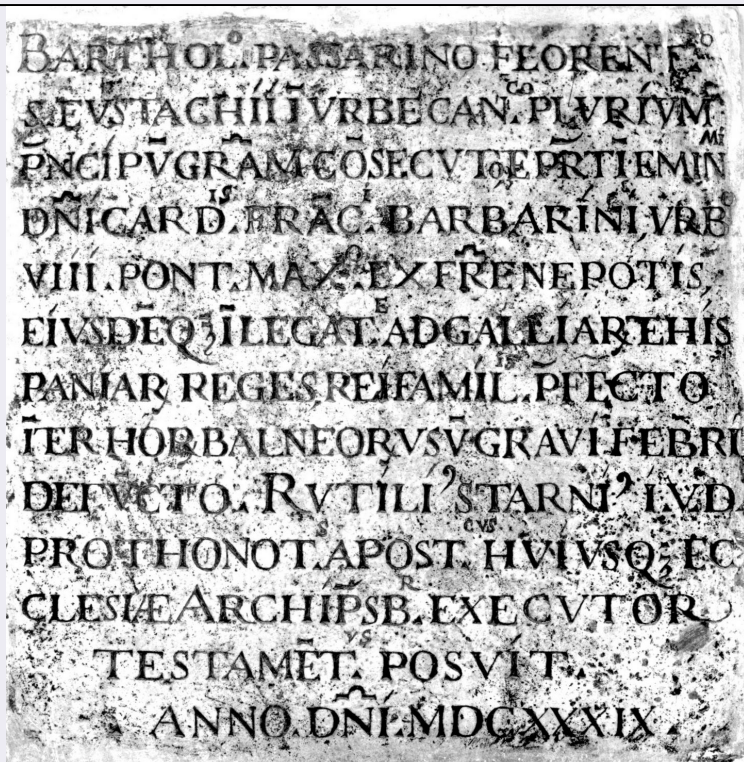 BARTHOL.º PASSARINO FLORENT.º
S. EVSTACHII Ī VRBE CAN.CO PLVRIVM̃
P̄NCIPV̄ GRAM̄ CŌSECVTO E PR̄TI EMINMI
DN̄I CARD.IS FRĀC.I BARBARINI VRBº
VIII. PONT. MAX.º EX FR̃E NEPOTIS,
EIVSDĒQȝ Ī LEGAT.E AD GALLIAR ET HIS
PANIAR REGES REI FAMIL.IS P̄FECTO
ĪTER HOR BALNEOR VSV̄ GRAVI FEBRI
DEFVCTO. RVTILI' STARNI' LVD.
PROTHONOT.S APOST.CVS HVIVSQȝ EC
CLESIÆ ARCHIP̄SB.R EXECVTOR
TESTAMĒT.VS POSVIT.
ANNO. DN̄I. MDCXXXIX.